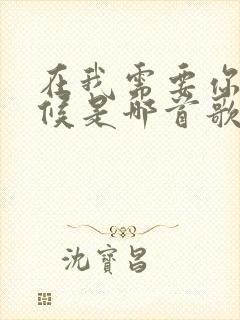 在我需要你
候是哪首歌
沈寶昌